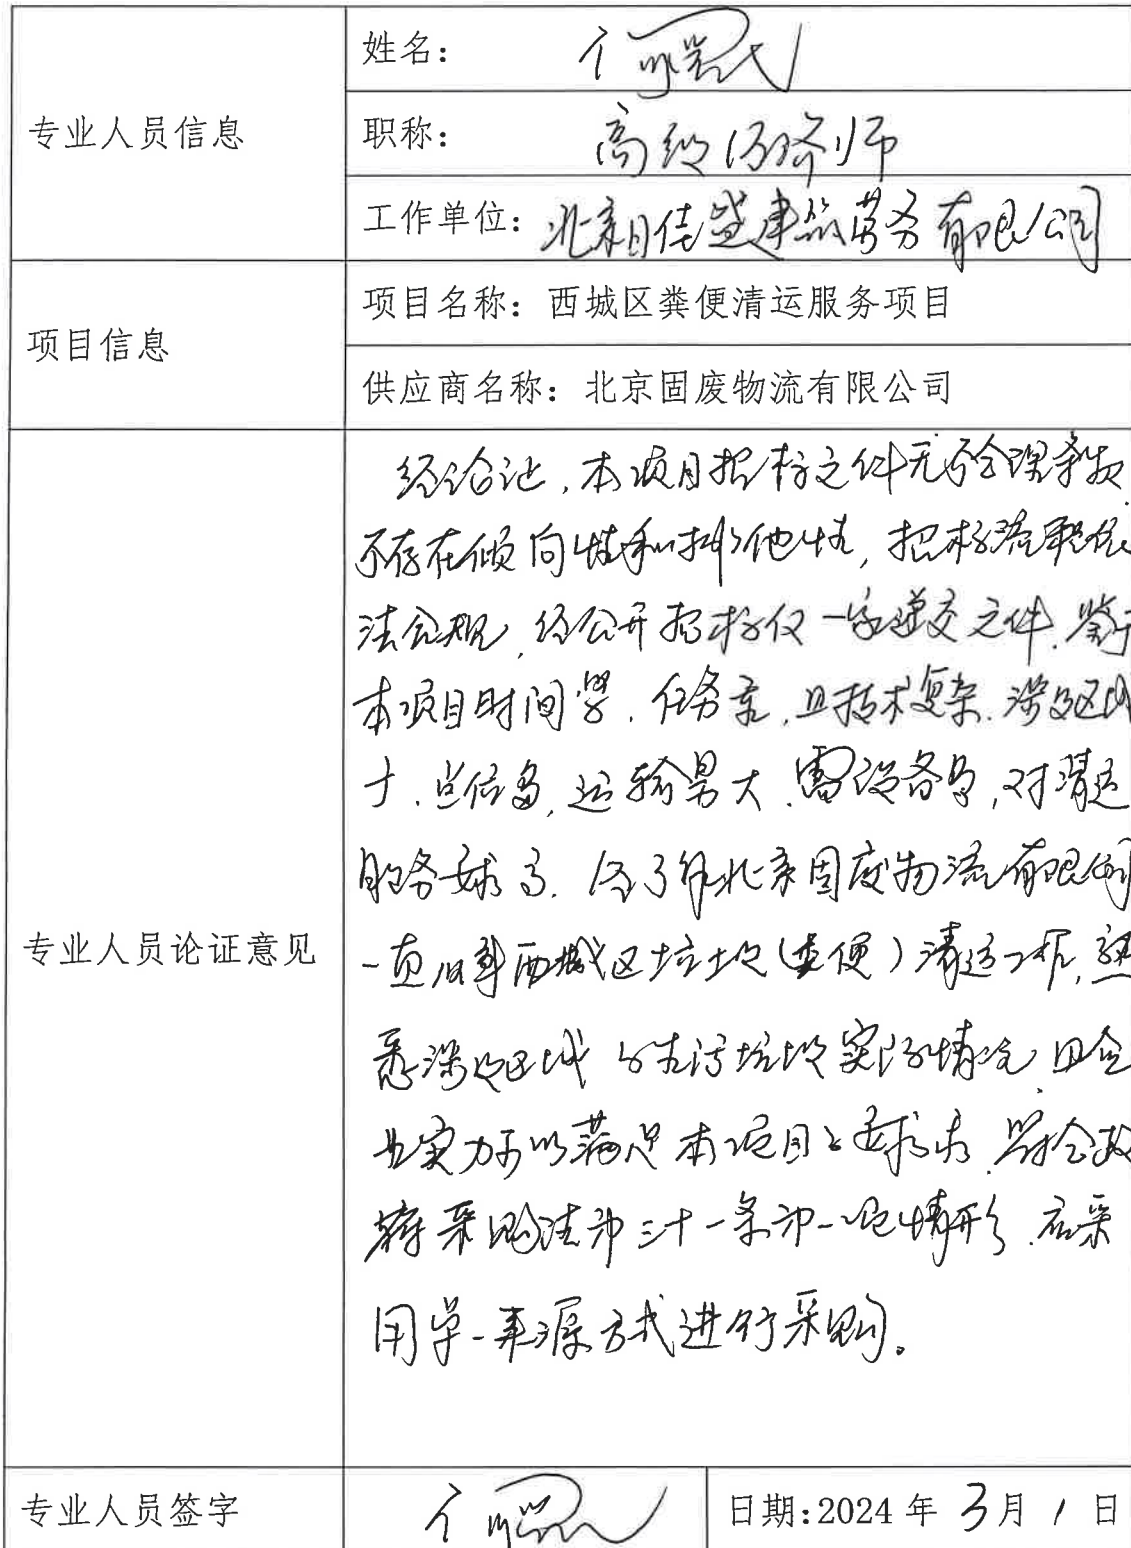 姓名：
专业人员信息
职称： 高级经济师
工作单位： 北京日佳盛建筑劳务有限公司
项目信息
项目名称：西城区粪便清运服务项目
供应商名称：北京固废物流有限公司
专业人员论证意见
经论证，本项目招标文件无不合理条款
不存在倾向性和排他性，招标流程依
法合规，经公开招标仅一家递交文件，鉴于
本项目时间紧，任务重，且技术复杂，涉及区域
广，点位多，运输量大，需设备多，对清运
服务要求高，经了解北京固废物流有限公司
一直从事西城区垃圾（粪便）清运工作，熟
悉涉及区域 生活垃圾实际情况，且企
业实力可以满足本项目之要求，符合政
府采购法第三十一条第一项情形，应采
用单一来源方式进行采购。
专业人员签字
日期：2024 年 3月 1 日